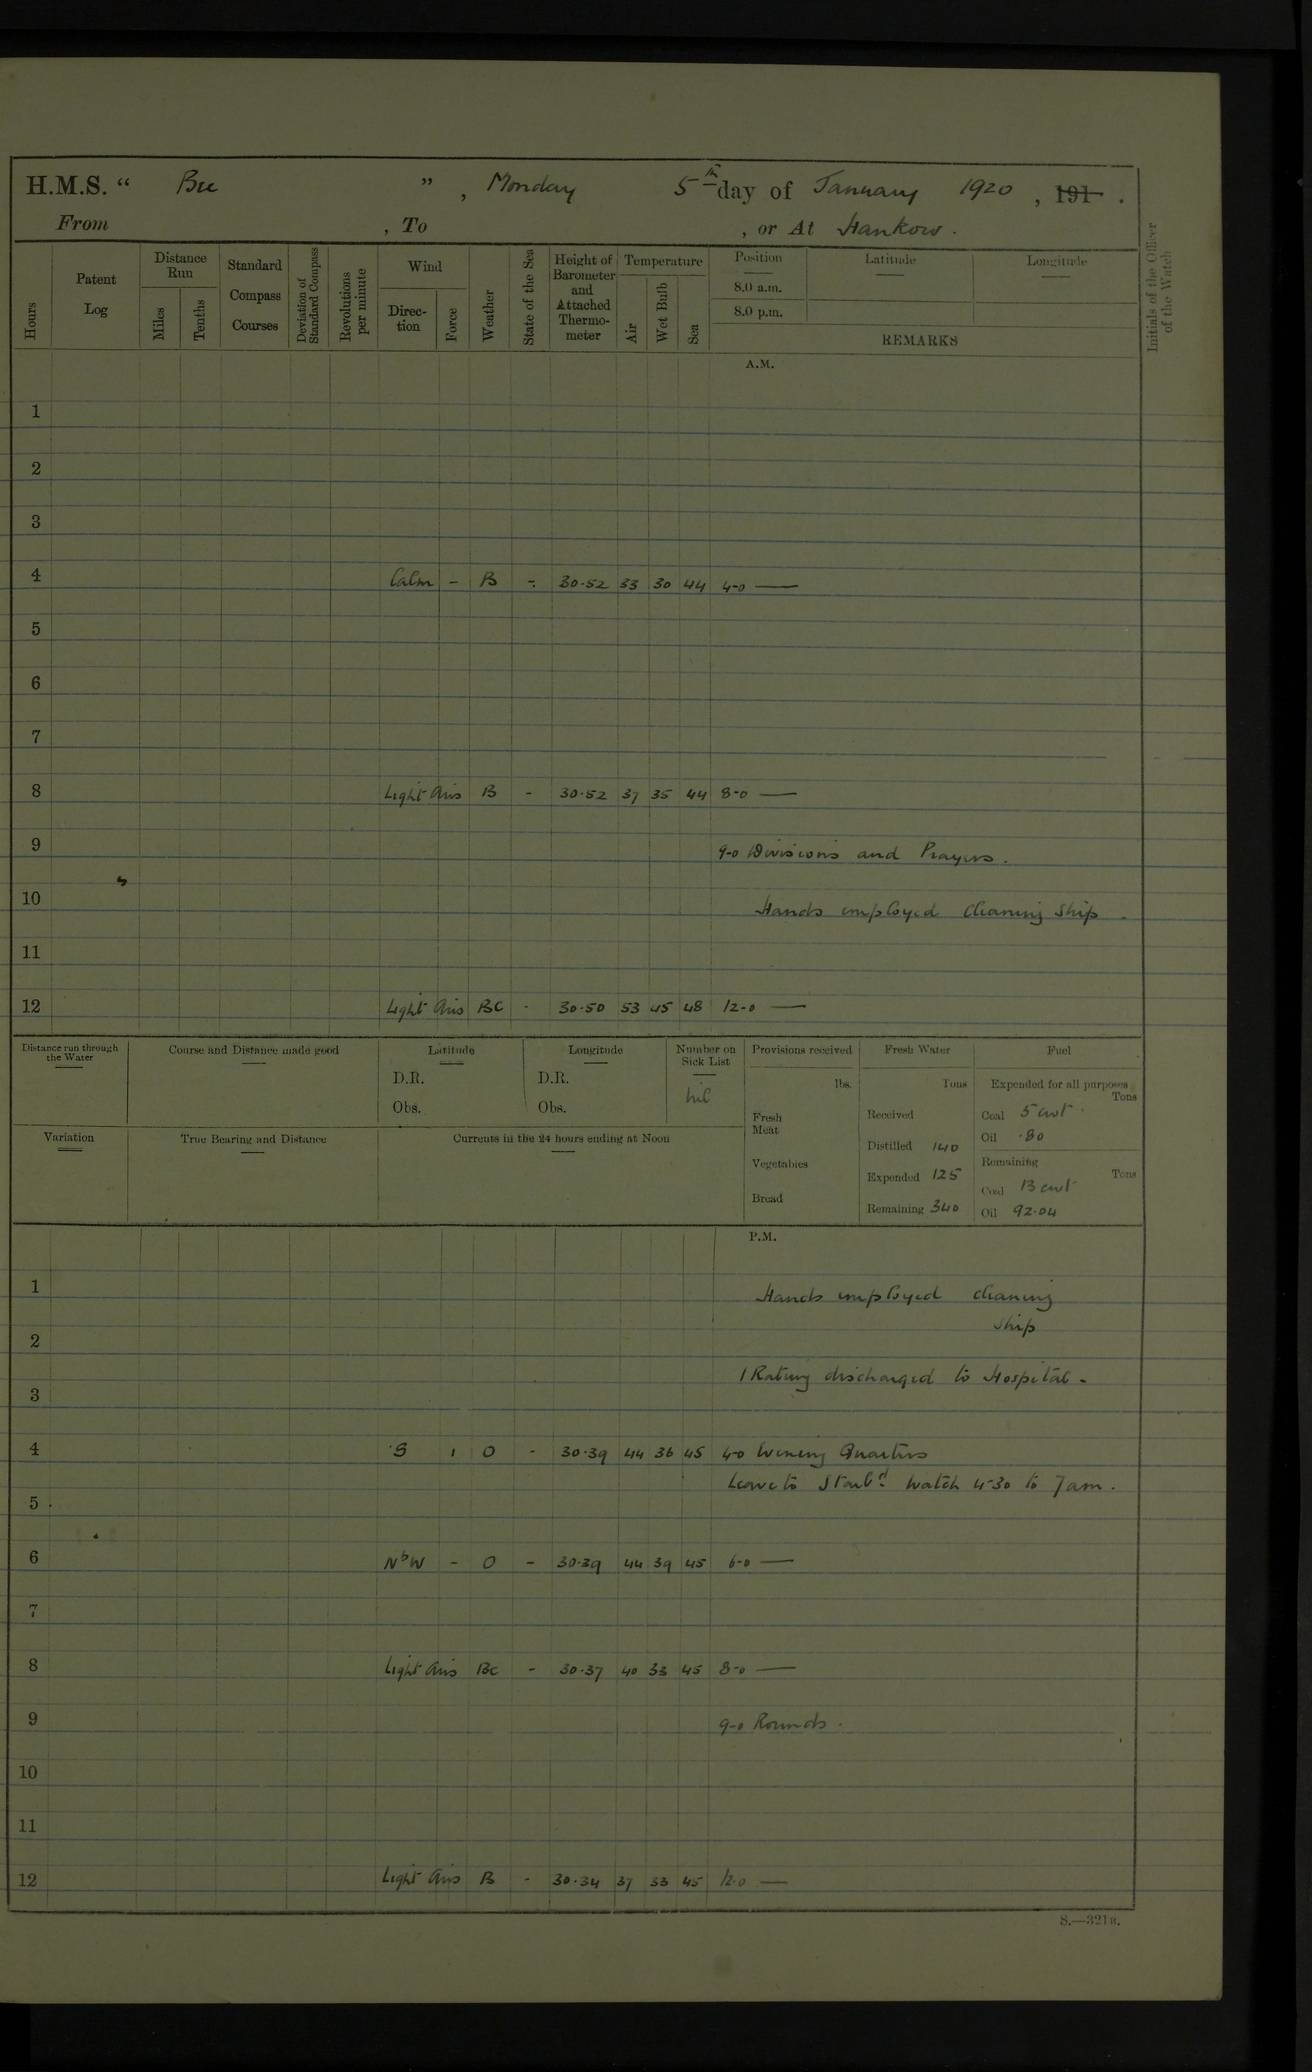 H.M.S. “ Bee ” , Monday 5th day of January 1920 , 191 .
From , To , or At Hankow .
Hours
Patent Log
Distance Run
Miles
Tenths
Standard Compass Courses
Deviation of Standard Compass
Revolutions per minute
Wind
Direc-tion
Force
Weather
State of the Sea
Height of Barometer and Attached Thermo-meter
Temperature
Air
Wet Bulb
Sea
Position
8.0 a.m.
8.0 p.m.
Latitude
Longitude
REMARKS
Initials of the Officer of the Watch
A.M.
1
2
3
4 Calm - B - 30.52 33 30 44 4-0 —
5
6
7
8 Light Airs B - 30.52 37 35 44 8-0 —
9 9-0 Divisions and Prayers.
10 Hands employed cleaning ship.
11
12 Light Airs BC - 30.50 53 45 48 12-0 —
Distance run through the Water
Course and Distance made good
Latitude
D.R.
Obs.
Longitude
D.R.
Obs.
Number on Sick List
nil
Provisions received
lbs.
Fresh Meat
Vegetables
Bread
Fresh Water
Tons
Received
Distilled 140
Expended 125
Remaining 340
Fuel
Expended for all purposes
Tons
Coal 5 cwt.
Oil .80
Remaining
Tons
Coal 13 cwt
Oil 92.04
Variation
True Bearing and Distance
Currents in the 24 hours ending at Noon
P.M.
1 Hands employed cleaning
ship
2
1 Rating discharged to Hospital -
3
4 S 1 O - 30.39 44 36 45 4-0 Evening Quarters
Leave to Starbd. Watch 4-30 to 7am.
5
6 NbW - O - 30.39 44 39 45 6-0 —
7
8 Light Airs Bc - 30.37 40 33 45 8-0 —
9 9-0 Rounds.
10
11
12 Light Airs B - 30.34 37 33 45 12.0 —
S.—321B.